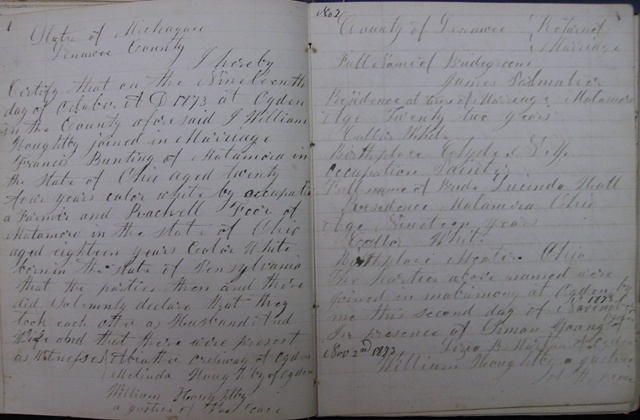 State of Michigan
Lenawee County
I hereby
Certify that on the Nineteenth
day of October A D 1873 at Ogden
in the County aforesaid I William
Houghtby joined in Marriage
Francis Bunting of Matamora in
the State of Ohio aged twenty
four years color white by occupatin
a Farmer and Rachell Poor of
Matamora in the state of Ohio
aged eighteen years Color White
born in the State of Pensylvania
that the parties then and there
did solemnly declare that they
took each other as Husband and
Wife and that there were present
as Witnesses at Ogden
Melinda Houghtby of Ogden
William Houghtby
a justice of the Peace
No 2
County of Lenawee Return of
Marriage
Full Name of Bridegroom
James
Residence at time of Marriage Matamora
Age Twenty two years
Collor White
Birthplace Clyde N.Y.
Occupation Farmer
Full name of Bride Lucinda Hall
residence Matamora Ohio
Age Nineteen years
Collor White
Birthplace Ohio
The parties above named were
joined in matrimony at Ogden by
me this second day of November 1873
In presence of Young
Nov 2nd 1873
William Houghtby a justice